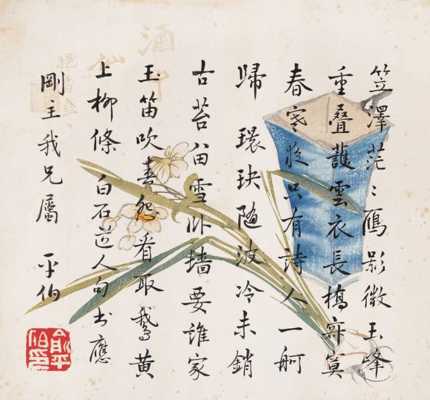 笠澤茫〻鴈影微玉峰
重叠護雲衣長橋寂寞
春寒夜只有詩人一舸
歸環玦隨波冷未銷
古苔留雪卧墻要誰家
玉笛吹春怨看取鵝黄
上柳條白石道人句書應
剛主我兄屬 平伯
俞平伯印